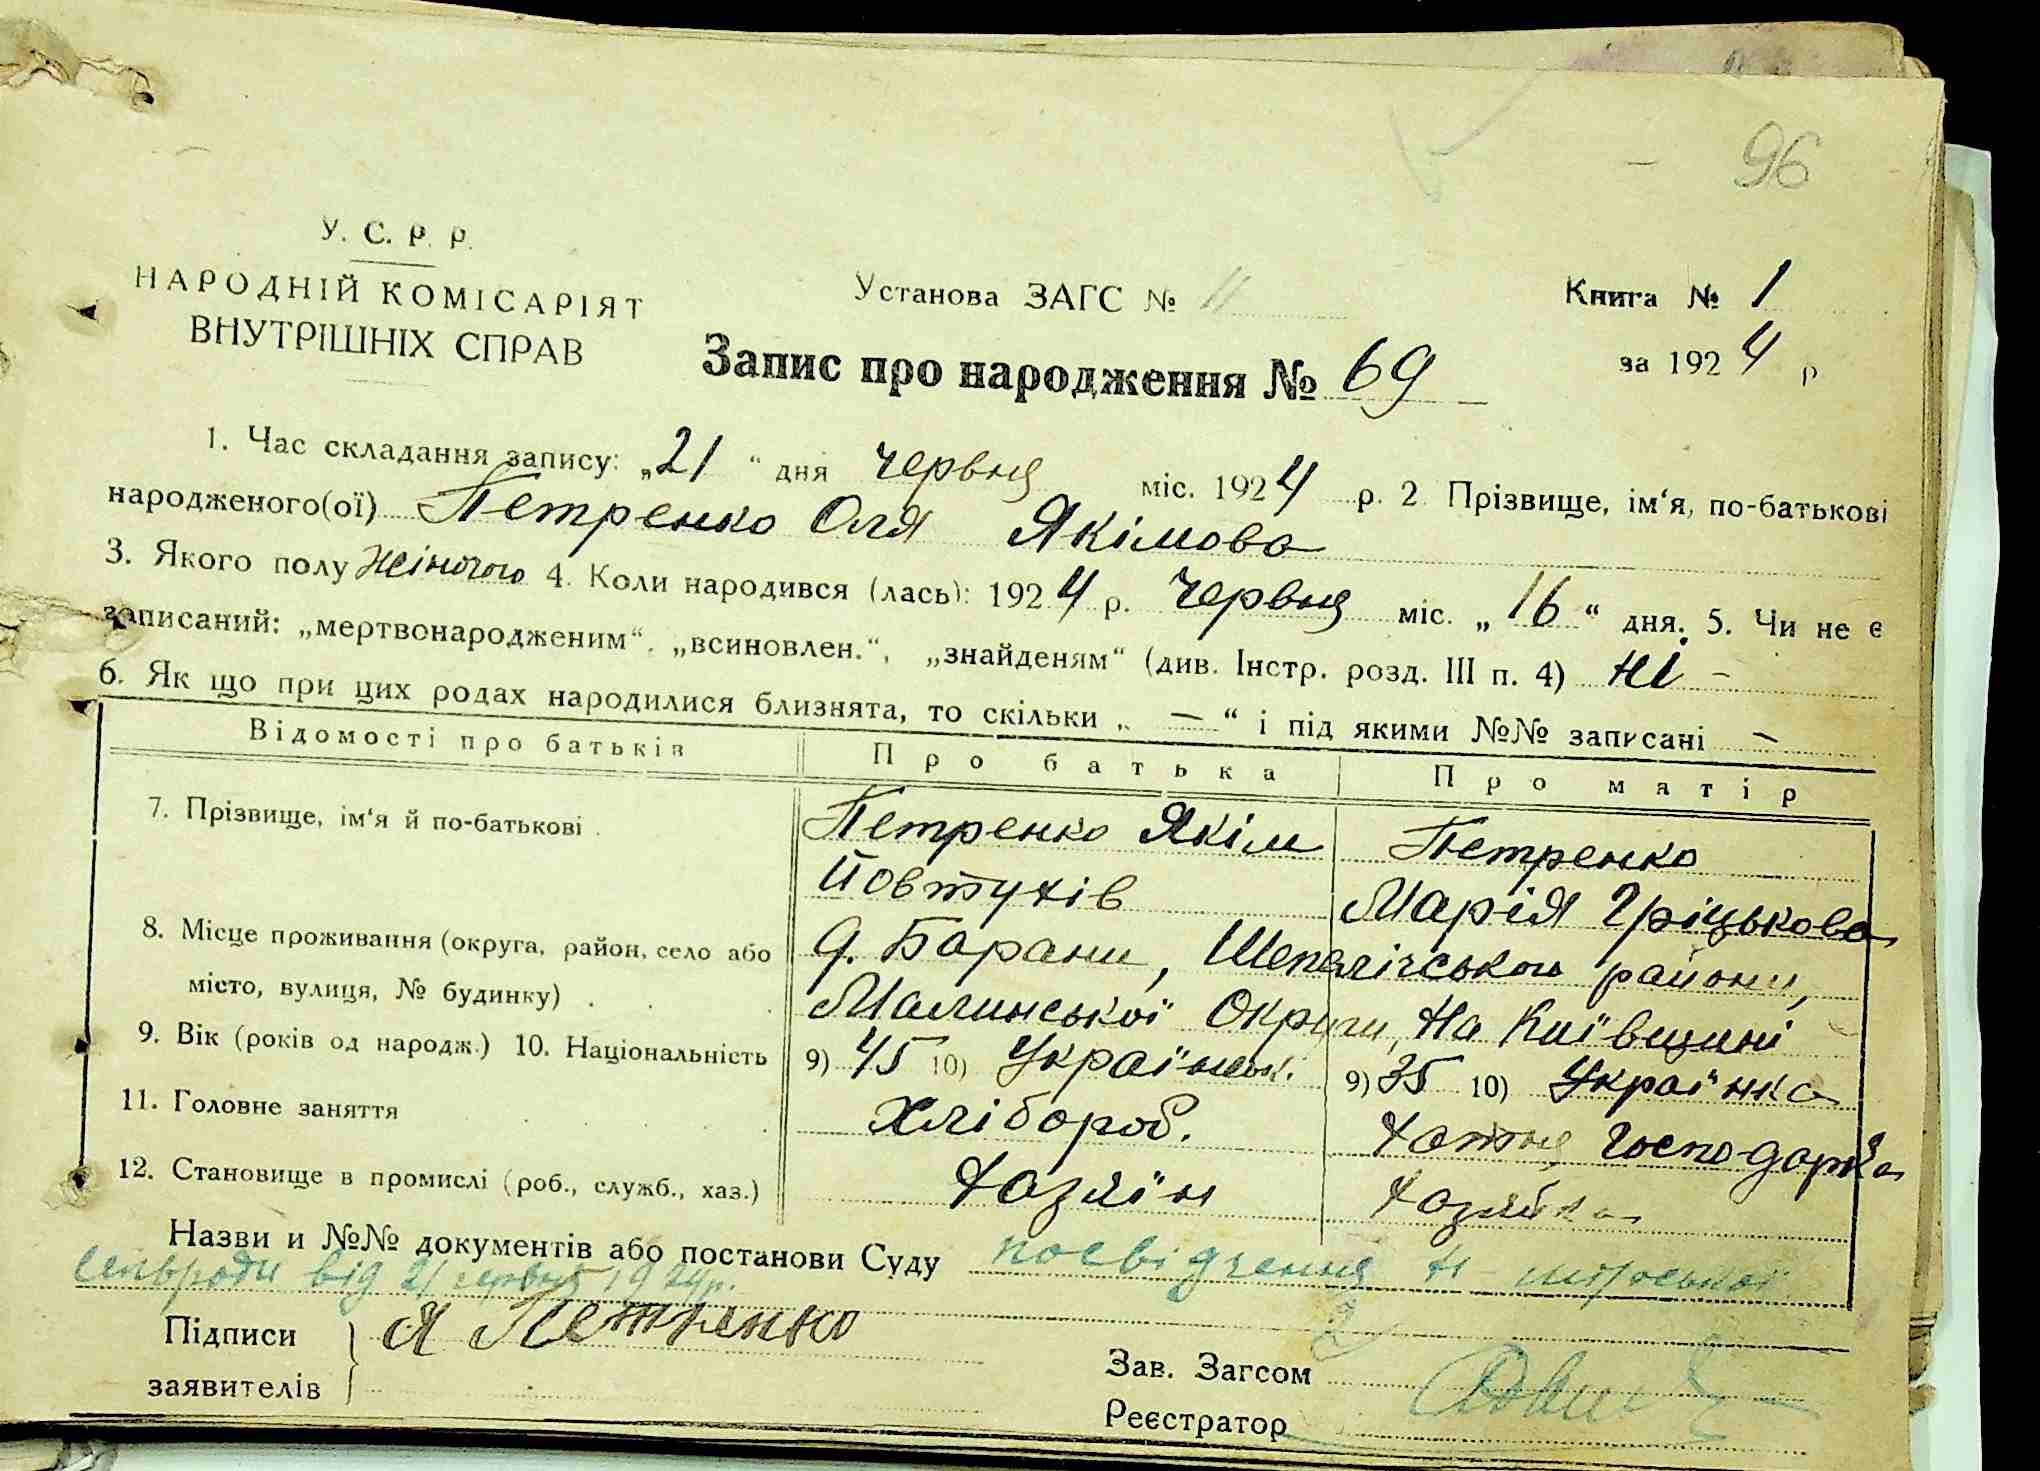 96
У. С. Р. Р.
НАРОДНІЙ КОМІСАРІЯТ
ВНУТРІШНІХ СПРАВ
Установа ЗАГС № 11
Книга № 1
за 1924 р
Запис про народження № 69
1. Час складання запису: „21“ дня червня міс. 1924 р. 2 Прізвище, ім‘я, по-батькові
народженого(ої) Петренко Оля Якімова
3. Якого полу Жіночого 4. Коли народився (лась): 1924 р. Червня міс. „16“ дня. 5. Чи не є
записаний: „мертвонародженим“. „всиновлен.“, „знайденям“ (див. Інстр. розд. III п. 4) ні -
6. Як що при цих родах народилися близнята, то скільки „ — “ і під якими №№ записані -
Відомості про батьків Про батька Про матір
7. Прізвище, ім‘я й по-батькові Петренко Якім Петренко
Йовтухів Марія Гріцькова
8. Місце проживання (округа, район, село або д. Барани, Шепелічського району,
місто, вулиця, № будинку) Малинської Округи, На Київщині
9. Вік (років од народж.) 10. Національність 9) 45 10) Українськ. 9) 35 10) Українка
11. Головне заняття Хлібороб. Хатня Господарка
12. Становище в промислі (роб., служб., хаз.) Хазяїн Хазяйка
Назви и №№ документів або постанови Суду посвідчення
сільради від 21 червня 1924р.
Підписи Я Петренко
заявителів
Зав. Загсом
Реєстратор